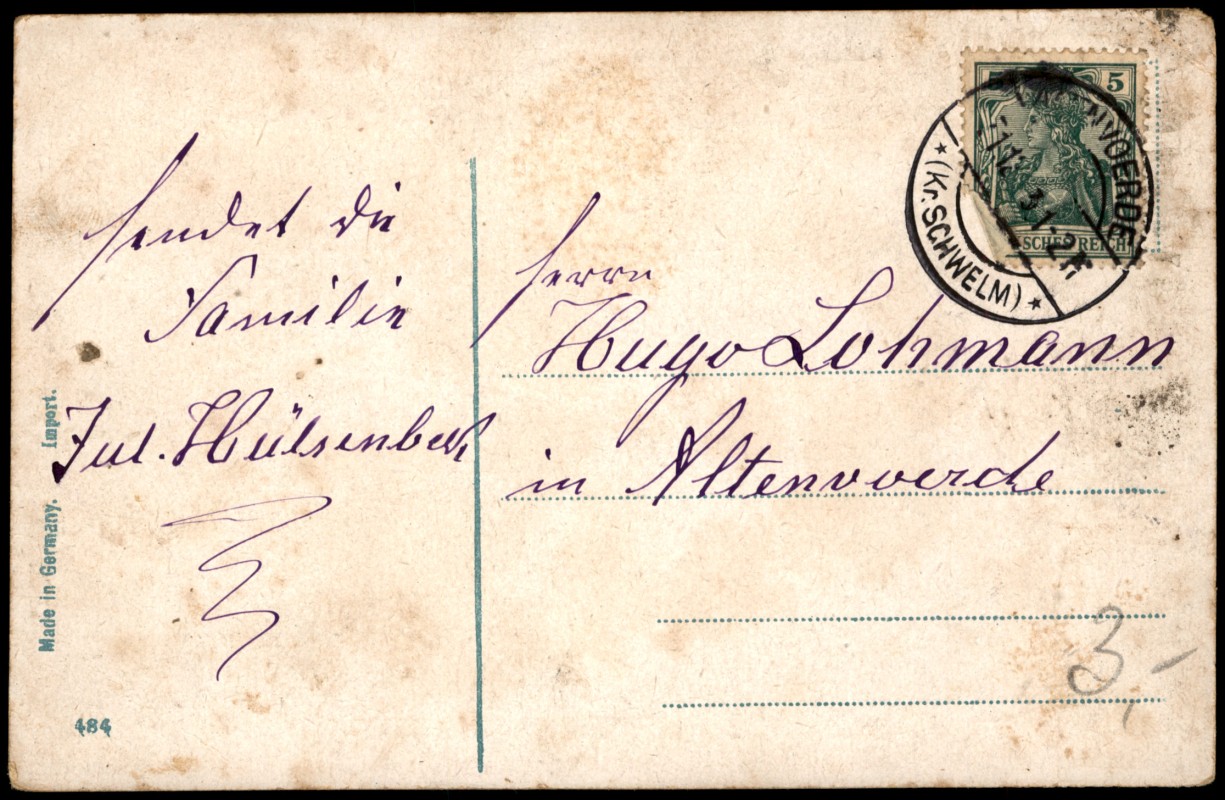 sendet die
Familie
Jul. Hülsenbeck
Herrn
Hugo Lohmann
in Altenvoerde
Made in Germany. Import.
484
5
5
ENVOERDE
(Kr. SCHWELM)
1-2N
SCHES REICH
3,-